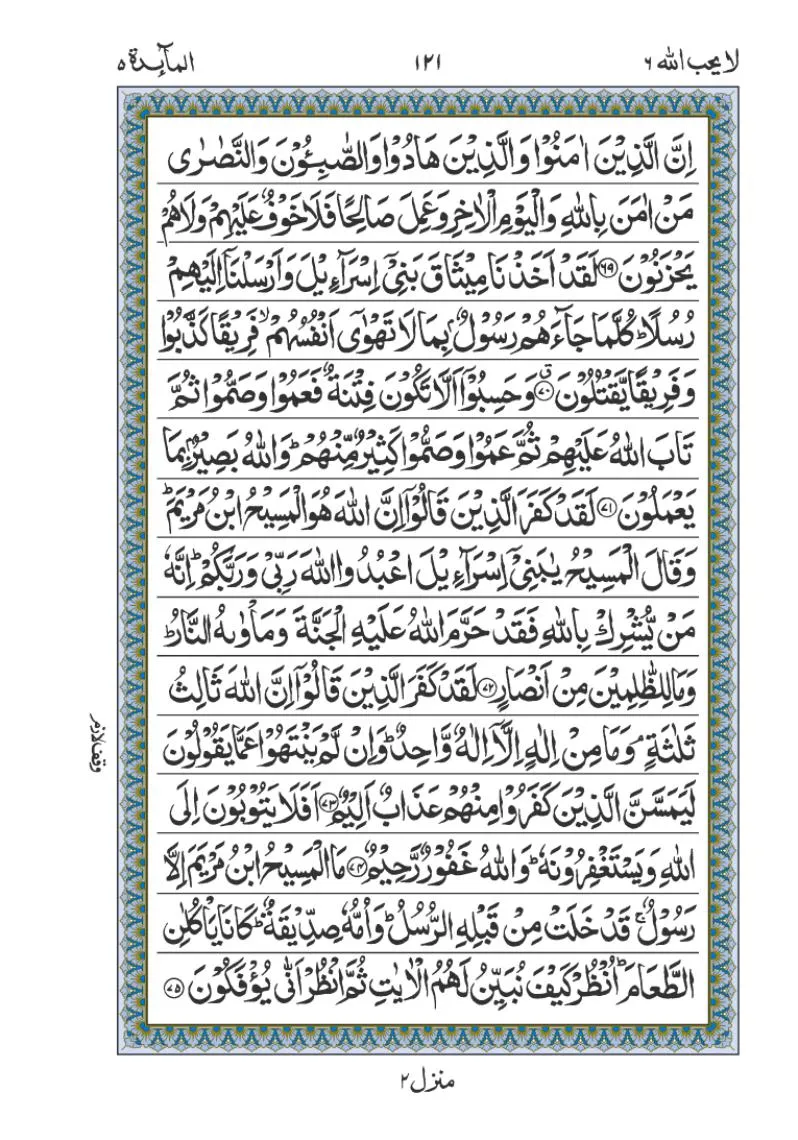 لا يحب الله ٦ ١٢١ المآئدة ٥
اِنَّ الَّذِيْنَ اٰمَنُوْا وَالَّذِيْنَ هَادُوْا وَالصّٰبِـُٔوْنَ وَالنَّصٰرٰى
مَنْ اٰمَنَ بِاللّٰهِ وَالْيَوْمِ الْاٰخِرِ وَعَمِلَ صَالِحًا فَلَا خَوْفٌ عَلَيْهِمْ وَلَا هُمْ
يَحْزَنُوْنَ ۝۶۹ لَقَدْ اَخَذْنَا مِيْثَاقَ بَنِيْٓ اِسْرَآءِيْلَ وَاَرْسَلْنَآ اِلَيْهِمْ
رُسُلًا ؕ كُلَّمَا جَآءَهُمْ رَسُوْلٌۢ بِمَا لَا تَهْوٰٓى اَنْفُسُهُمْ ۙ فَرِيْقًا كَذَّبُوْا
وَفَرِيْقًا يَّقْتُلُوْنَ ۝۷۰ ق وَحَسِبُوْٓا اَلَّا تَكُوْنَ فِتْنَةٌ فَعَمُوْا وَصَمُّوْا ثُمَّ
تَابَ اللّٰهُ عَلَيْهِمْ ثُمَّ عَمُوْا وَصَمُّوْا كَثِيْرٌ مِّنْهُمْ ؕ وَاللّٰهُ بَصِيْرٌۢ بِمَا
يَعْمَلُوْنَ ۝۷۱ لَقَدْ كَفَرَ الَّذِيْنَ قَالُوْٓا اِنَّ اللّٰهَ هُوَ الْمَسِيْحُ ابْنُ مَرْيَمَ ؕ
وَقَالَ الْمَسِيْحُ يٰبَنِيْٓ اِسْرَآءِيْلَ اعْبُدُوا اللّٰهَ رَبِّيْ وَرَبَّكُمْ ؕ اِنَّهٗ
مَنْ يُّشْرِكْ بِاللّٰهِ فَقَدْ حَرَّمَ اللّٰهُ عَلَيْهِ الْجَنَّةَ وَمَاْوٰىهُ النَّارُ ؕ
وَمَا لِلظّٰلِمِيْنَ مِنْ اَنْصَارٍ ۝۷۲ لَقَدْ كَفَرَ الَّذِيْنَ قَالُوْٓا اِنَّ اللّٰهَ ثَالِثُ
ثَلٰثَةٍ ۘ وَمَا مِنْ اِلٰهٍ اِلَّآ اِلٰهٌ وَّاحِدٌ ؕ وَاِنْ لَّمْ يَنْتَهُوْا عَمَّا يَقُوْلُوْنَ
وقف لازم
لَيَمَسَّنَّ الَّذِيْنَ كَفَرُوْا مِنْهُمْ عَذَابٌ اَلِيْمٌ ۝۷۳ اَفَلَا يَتُوْبُوْنَ اِلَى
اللّٰهِ وَيَسْتَغْفِرُوْنَهٗ ؕ وَاللّٰهُ غَفُوْرٌ رَّحِيْمٌ ۝۷۴ مَا الْمَسِيْحُ ابْنُ مَرْيَمَ اِلَّا
رَسُوْلٌ ۚ قَدْ خَلَتْ مِنْ قَبْلِهِ الرُّسُلُ ؕ وَاُمُّهٗ صِدِّيْقَةٌ ؕ كَانَا يَاْكُلٰنِ
الطَّعَامَ ؕ اُنْظُرْ كَيْفَ نُبَيِّنُ لَهُمُ الْاٰيٰتِ ثُمَّ انْظُرْ اَنّٰى يُؤْفَكُوْنَ ۝۷۵
منزل ٢